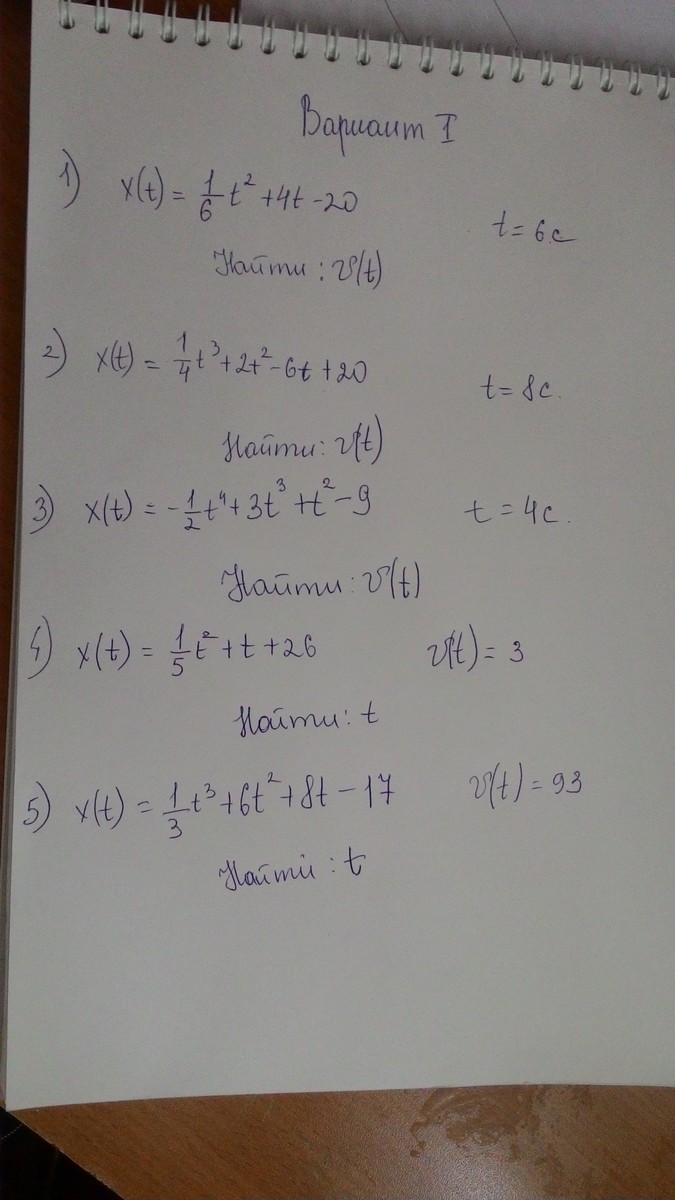 Вариант I
1) x(t) = 1/6 t² + 4t - 20 t = 6c
Найти: v(t)
2) x(t) = 1/4 t³ + 2t² - 6t + 20 t = 8c.
Найти: v(t)
3) x(t) = - 1/2 t⁴ + 3t³ + t² - 9 t = 4c.
Найти: v(t)
4) x(t) = 1/5 t² + t + 26 v(t) = 3
Найти: t
5) x(t) = 1/3 t³ + 6t² + 8t - 17 v(t) = 93
Найти: t